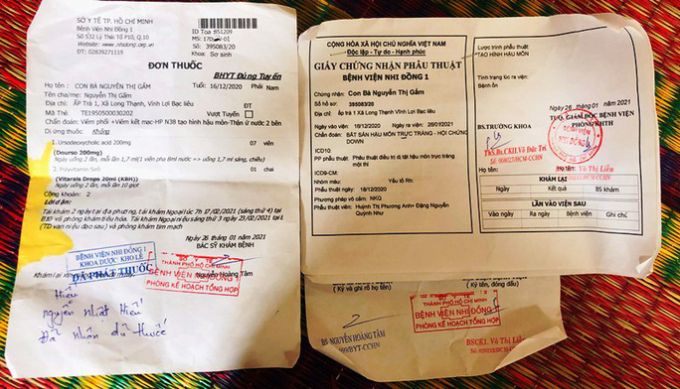 SỞ Y TẾ TP. HỒ CHÍ MINH
Bệnh Viện Nhi Đồng 1
Số 532 Lý Thái Tổ P10, Q.10
ĐT: 02839271119
ID Toa
MS:
Số: 395083/20
Khoa: Sơ sinh
ĐƠN THUỐC
BHYT Đúng Tuyến
Họ tên: CON BÀ NGUYỄN THỊ GẤM
Tuổi: 16/12/2020
Phái Nam
Tên cha/mẹ: Nguyễn Thị Gấm
Địa chỉ: ẤP Trà 1, Xã Long Thạnh, Vĩnh Lợi Bạc liêu
Mã thẻ: TE1950500030202
Chẩn đoán: Viêm phổi+Viêm kết mạc-HP N38 tạo hình hậu môn-Thận ứ nước 2 bên
Dị ứng thuốc: Không
1. Ursodeoxycholic acid 200mg
07 viên
(Dourso 200mg)
Ngày uống 2 lần, mỗi lần 1,7 ml
2. Polyvitamin
01
(Vitarals Drops 20ml (KBH))
Ngày uống 2 lần, mỗi lần 10 giọt
Cộng khoản: 2
Lời dặn:
Tái khám 2 ngày tại địa phương, tái khám Ngoại 17/02/2021 (sáng thứ 4) tại
và phòng khám tiêu hóa. Tái khám Ngoại sáng thứ 3 ngày 23/02/2021 tại
và phòng khám tim mạch
Ngày 26 tháng 01 năm 2021
BÁC SỸ KHÁM BỆNH
BỆNH VIỆN NHI ĐỒNG 1
KHOA DƯỢC KHO LẺ
ĐÃ PHÁT THUỐC
SỞ Y TẾ
THÀNH PHỐ HỒ CHÍ MINH
BỆNH VIỆN NHI ĐỒNG 1
PHÒNG KẾ HOẠCH TỔNG HỢP
Nguyễn Hoàng Tâm
Hiếu
nguyễn nhật Hiếu
Đã nhận đủ thuốc
CỘNG HÒA XÃ HỘI CHỦ NGHĨA VIỆT NAM
Độc lập - Tự do - Hạnh phúc
GIẤY CHỨNG NHẬN PHẪU THUẬT
BỆNH VIỆN NHI ĐỒNG 1
Họ tên: Con Bà Nguyễn Thị Gấm
Số hồ sơ: 395083/20
Địa chỉ: ấp trà 1 Xã Long Thạnh, Vĩnh Lợi Bạc liêu
Vào viện ngày: 16/12/2020
Ra viện ngày: 26/01/2021
Chẩn đoán: BẤT SẢN HẬU MÔN TRỰC TRÀNG - HỘI CHỨNG
DOWN
ICD10:
PP phẫu thuật: Phẫu thuật điều trị dị tật hậu môn trực tràng
một thì
ICD9-CM:
Nhóm máu:
Yếu tố Rh:
Phẫu thuật ngày: 18/12/2020
Phương pháp vô cảm: NKQ
Phẫu thuật viên: Huỳnh Thị Phương Anh+ Đặng Nguyễn
Quỳnh Như
Lược trình phẫu thuật:
TẠO HÌNH HẬU MÔN
Tình trạng lúc ra viện:
Bệnh ổn
Ngày 26 tháng 01 năm 2021
TU.Q. GIÁM ĐỐC BỆNH VIỆN
TRƯỞNG PHÒNG KHTH
BS.TRƯỞNG KHOA
BỆNH VIỆN
NHI ĐỒNG 1
Ths.Bs.CKII.Võ Đức Trí
Họ tên
Võ Thị Liễu
KHÁM LẠI
Ngày
Kết quả
BS khám
LẦN VÀO VIỆN SAU
Vào ngày
Ra ngày
Bệnh viện
Ghi chú
(Ký và ghi rõ họ tên)
(Ký tên, đóng dấu)
THÀNH PHỐ HỒ CHÍ MINH
BỆNH VIỆN NHI ĐỒNG 1
PHÒNG KẾ HOẠCH TỔNG HỢP
BS-NGUYỄN HOÀNG TÂM
BSCK1. Võ Thị